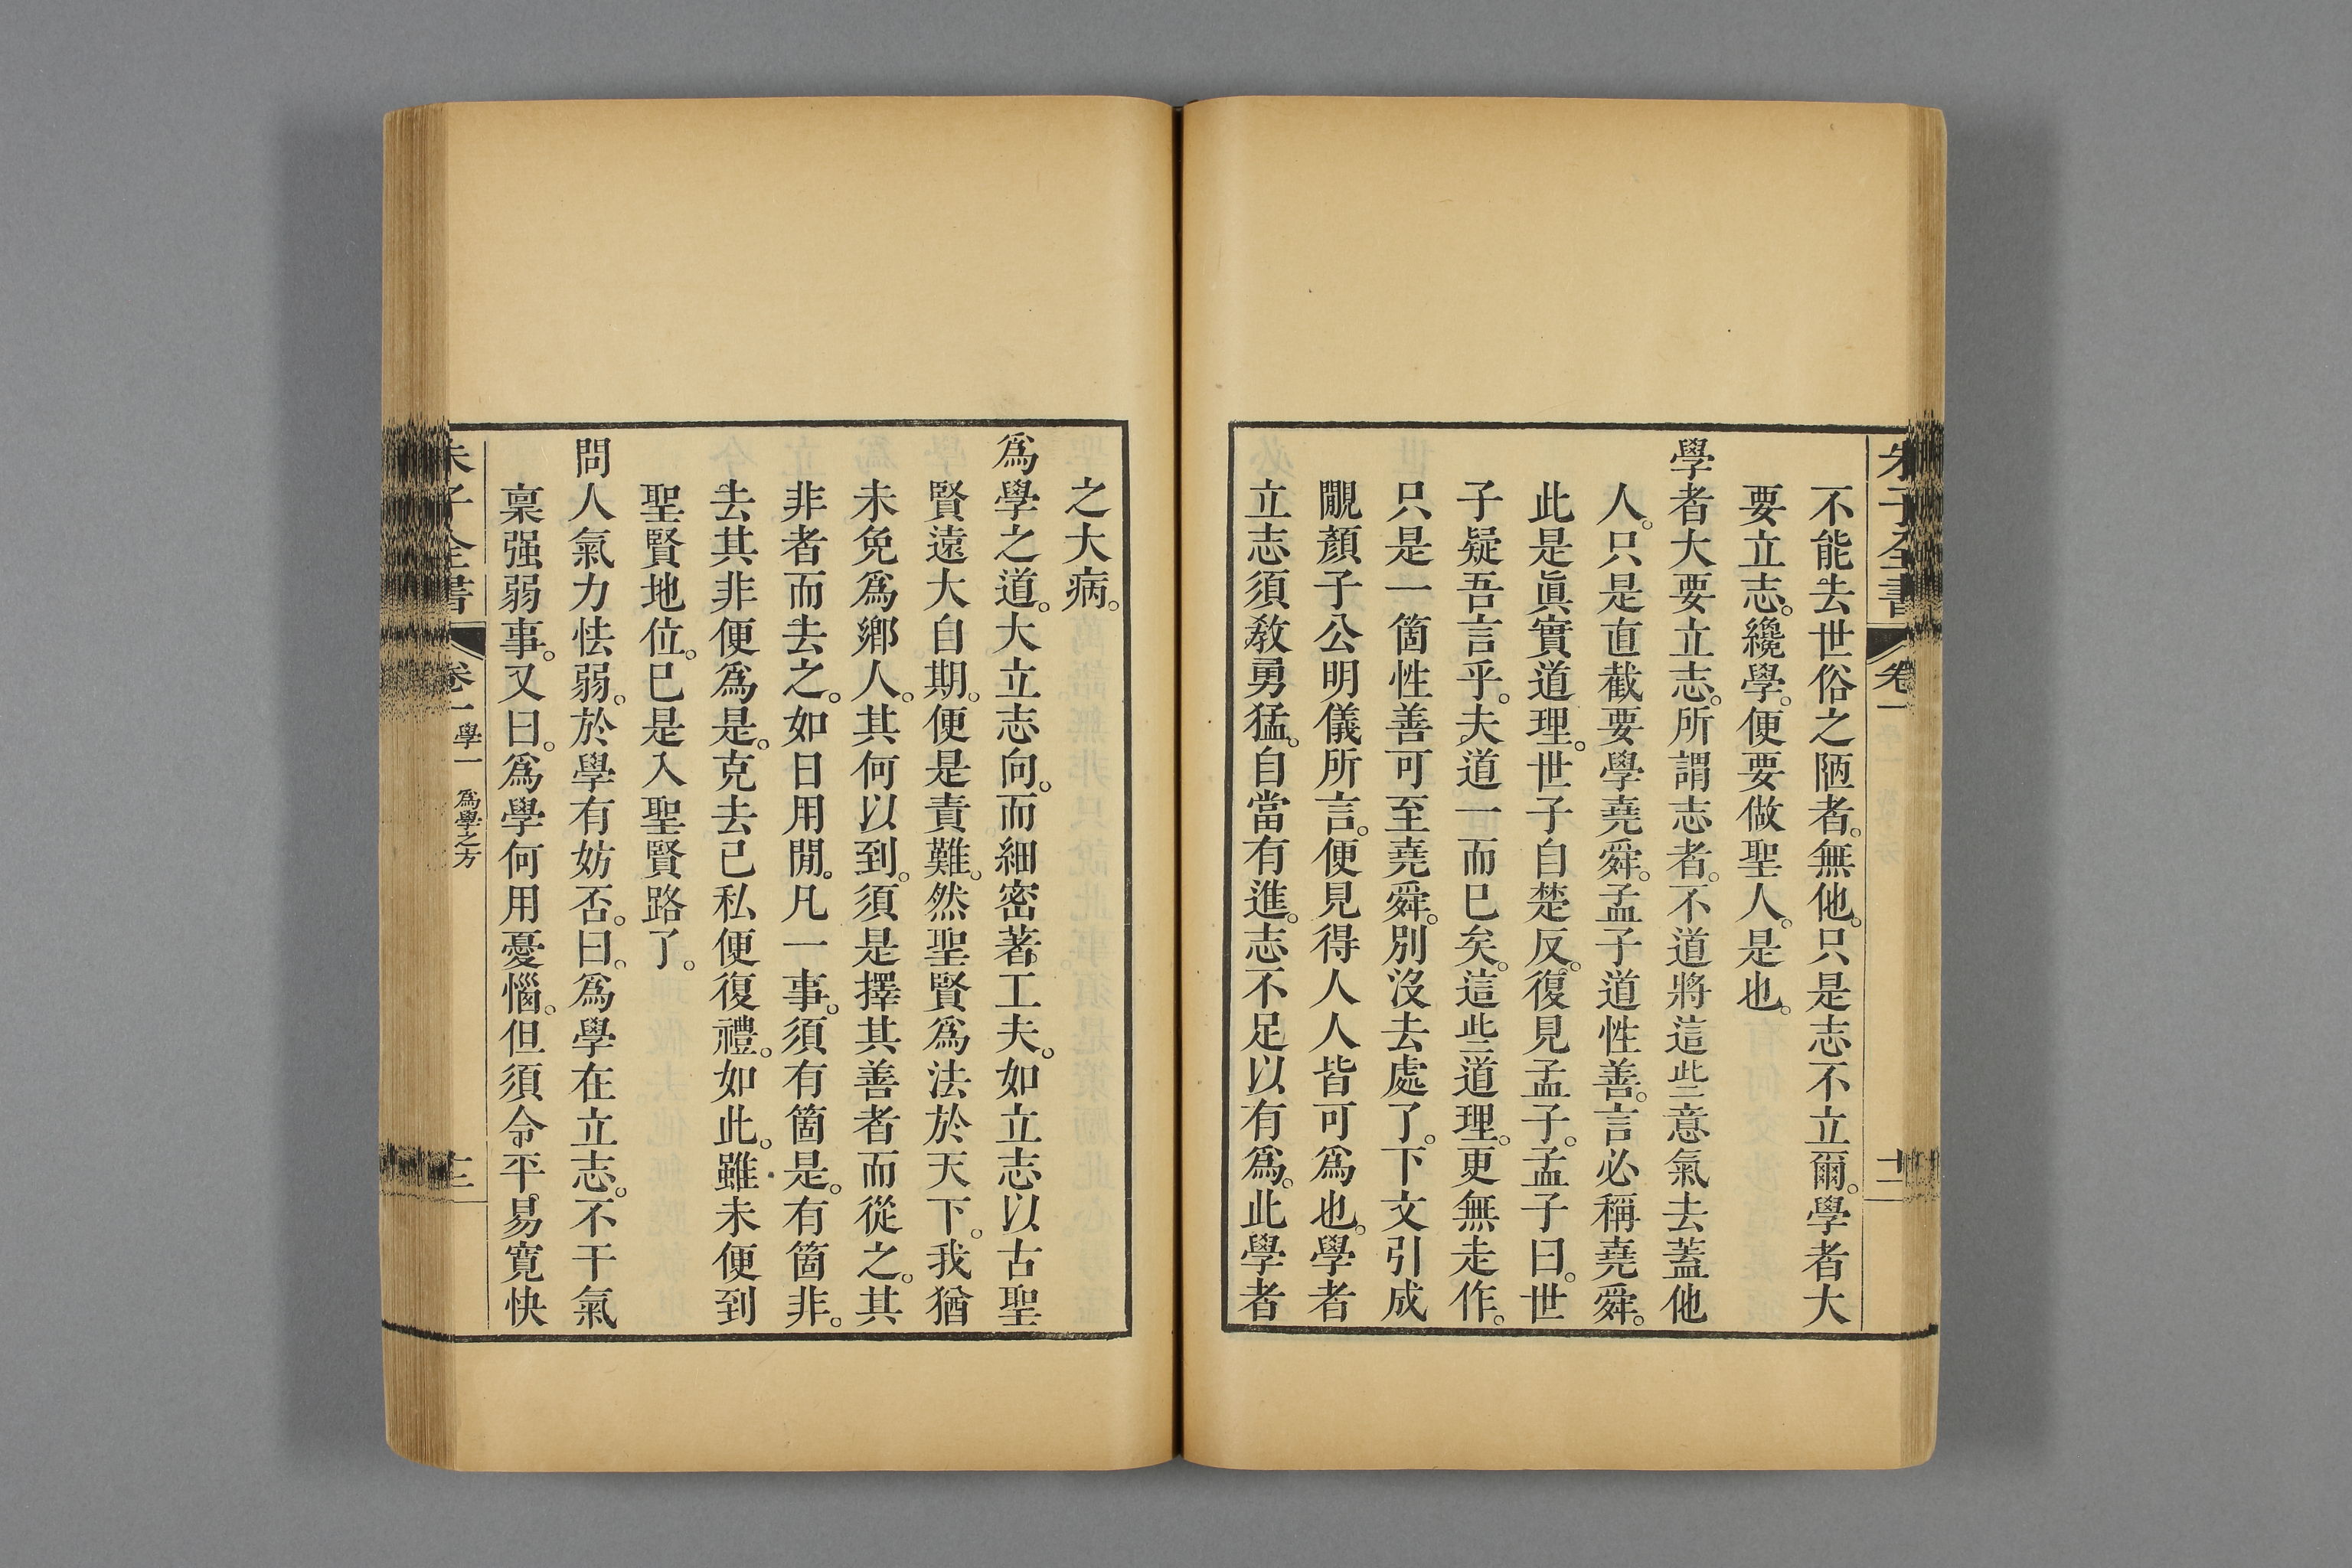 朱子全書 卷一 十二
不能去世俗之陋者。無他。只是志不立爾。學者大
要立志。纔學。便要做聖人。是也。
學者大要立志。所謂志者。不道將這些意氣去蓋他
人。只是直截要學堯舜。孟子道性善。言必稱堯舜。
此是眞實道理。世子自楚反。復見孟子。孟子曰。世
子疑吾言乎。夫道一而已矣。這些道理。更無走作。
只是一箇性善可至堯舜。別沒去處了。下文引成
覵顏子公明儀所言。便見得人人皆可爲也。學者
立志須敎勇猛。自當有進。志不足以有爲。此學者
之大病。
爲學之道。大立志向。而細密著工夫。如立志以古聖
賢遠大自期。便是責難。然聖賢爲法於天下。我猶
未免爲鄕人。其何以到。須是擇其善者而從之。其
非者而去之。如日用閒。凡一事。須有箇是。有箇非。
去其非便爲是。克去已私便復禮。如此。雖未便到
聖賢地位。已是入聖賢路了。
問人氣力怯弱。於學有妨否。曰。爲學在立志。不干氣
稟强弱事。又曰。爲學何用憂惱。但須令平易寬快
朱子全書 卷一 學一 爲學之方